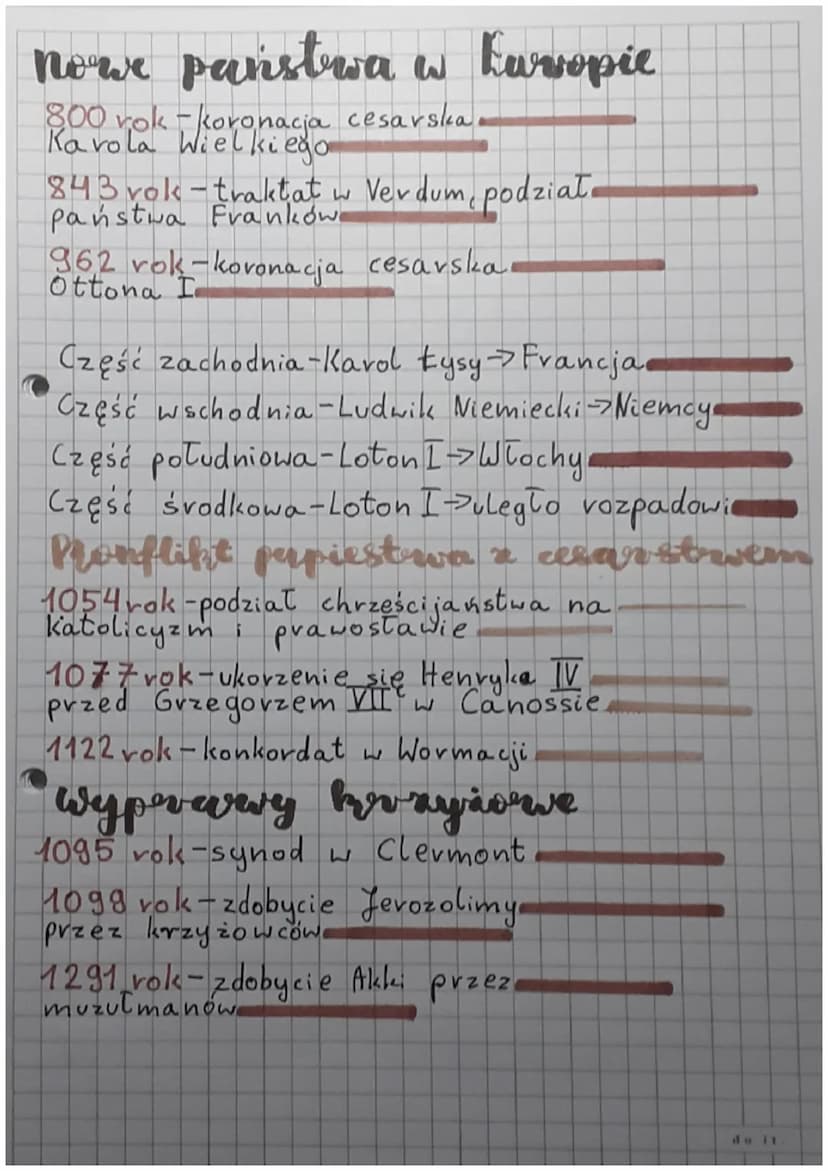 nowe państwa w Europie
800 rok - koronacja cesarska
Karola Wielkiego
843 rok - traktat w Verdum, podział
państwa Franków
962 rok - koronacja cesarska
Ottona I
Część zachodnia - Karol Łysy → Francja
Część wschodnia - Ludwik Niemiecki → Niemcy
Część południowa - Loton I → Włochy
Część środkowa - Loton I → uległo rozpadowi
Konflikt papiestwa z cesarstwem
1054 rok - podział chrześcijaństwa na
katolicyzm i prawosławie
1077 rok - ukorzenie się Henryka IV
przed Grzegorzem VII w Canossie
1122 rok - konkordat w Wormacji
wyprawy krzyżowe
1095 rok - synod w Clermont
1098 rok - zdobycie Jerozolimy
przez krzyżowców
1291 rok - zdobycie Akki przez
muzułmanów
do it